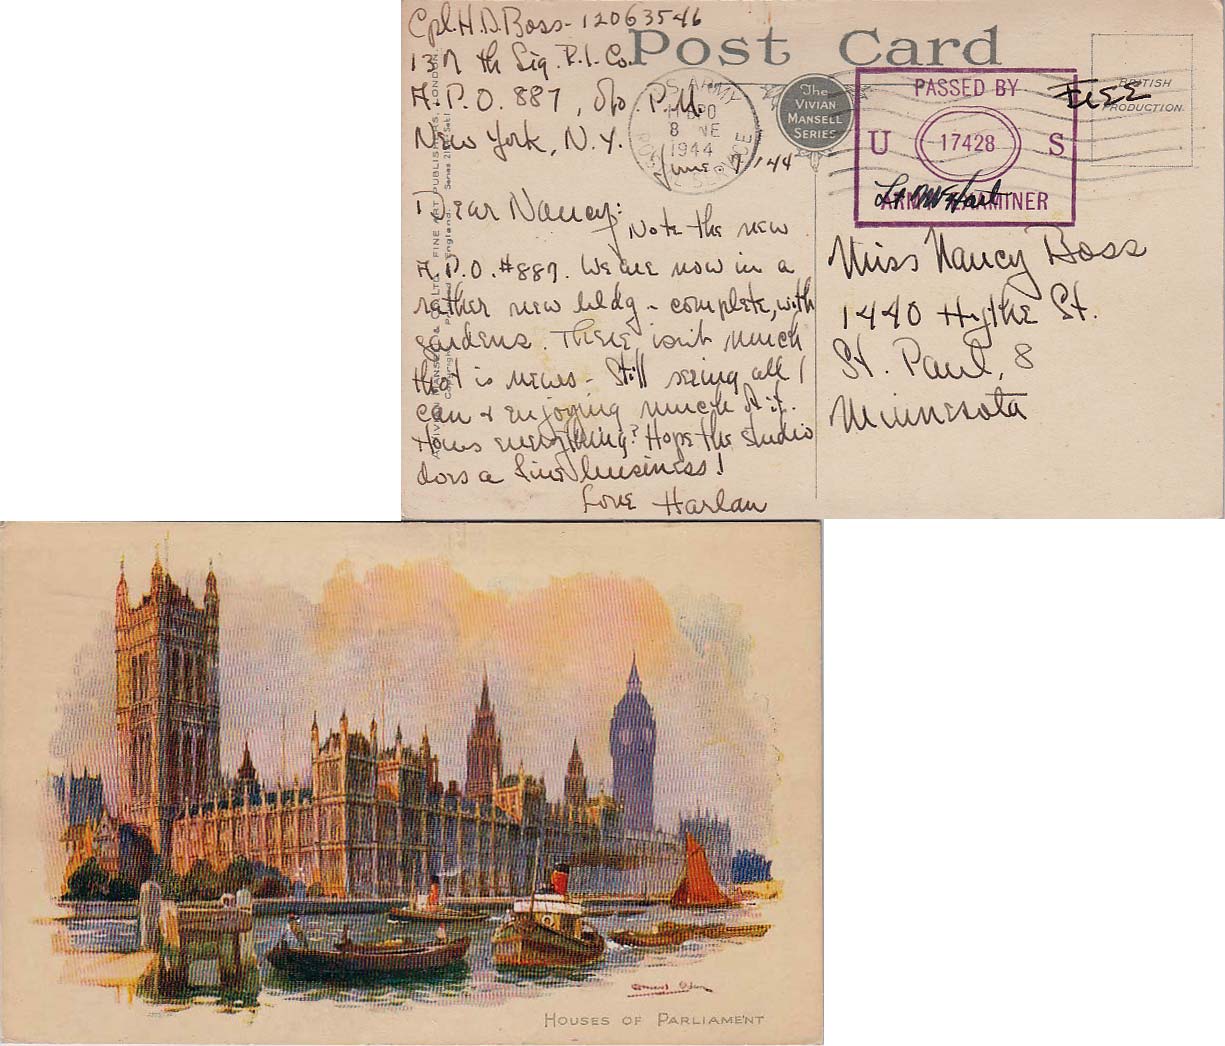 Cpl. H. D. Boss - 12063546
137 th Sig. R.I. Co.
A.P.O. 887, c/o P.M.
New York, N.Y.
June 7, '44
Dear Nancy:
Note the new
A.P.O. #887. We are now in a
rather new bldg - complete, with
gardens. There isn't much
that is news - Still seeing all I
can & enjoying much of it.
Hows everything? Hope the studio
does a fine business!
Love Harlan
Post Card
The
VIVIAN
MANSELL
SERIES
U.S. ARMY
8
1944
POSTAL SERVICE
PASSED BY
U 17428 S
ARMY EXAMINER
Lt
FREE
BRITISH
PRODUCTION.
Miss Nancy Boss
1440 Hythe St.
St. Paul, 8
Minnesota
FINE ART PUBLISHERS, LONDON.
England.
HOUSES OF PARLIAMENT